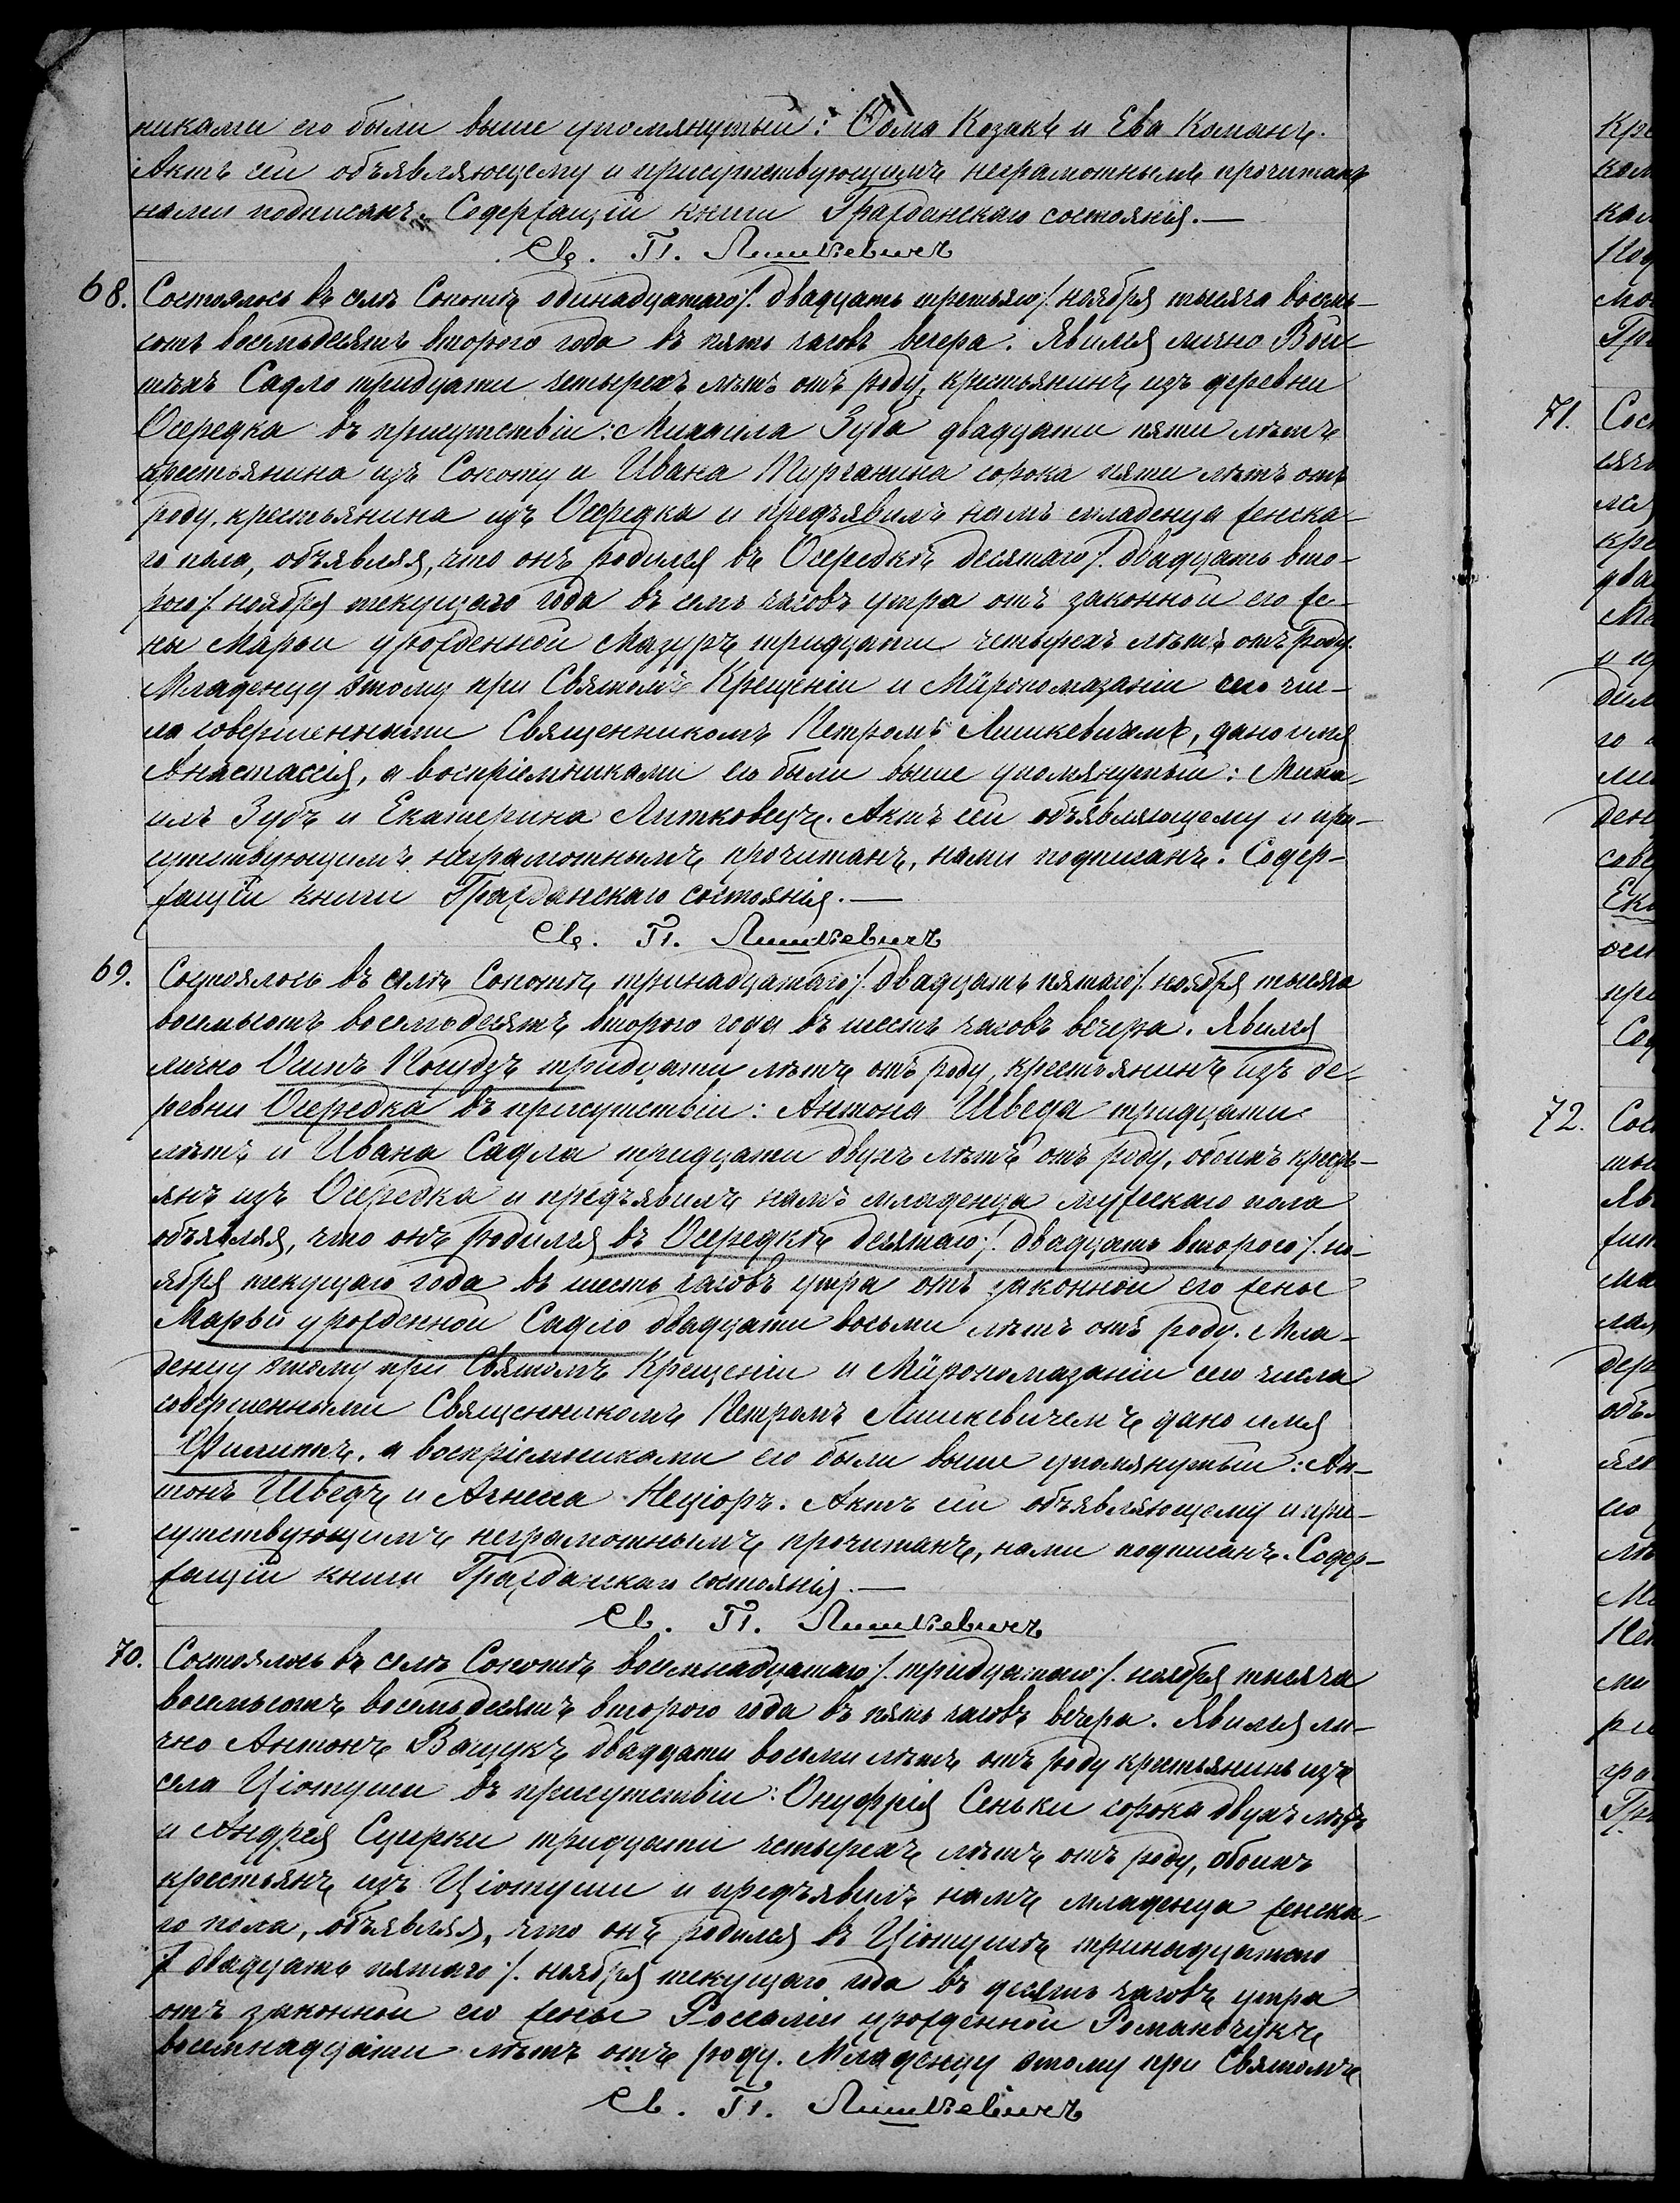 никами его были выше упомянутый: Ѳома Козакъ и Ева Команъ.
Актъ сей объявляющему и присутствующимъ неграмотнымъ прочитанъ
нами подписанъ. Содержащій книги Гражданскаго состоянія.—
Св. П. Лишкевичъ
68. Состоялось въ селѣ Сопотѣ одинадцатаго /: двадцать третьяго :/ ноября тысяча восемь-
сотъ восемьдесятъ второго года въ пять часовъ вечера. Явился лично Вой
тѣхъ Садло тридцати четырехъ лѣтъ отъ роду, крестьянинъ изъ деревни
Осередка въ присутствіи: Михаила Зуба двадцати пяти лѣтъ
крестьянина изъ Сопоту и Ивана Турчанина сорока пяти лѣтъ отъ
роду, крестьянина изъ Осередка и предъявилъ намъ младенца женска-
го пола, объявляя, что онъ родился въ Осередкѣ десятаго /: двадцать вто-
рого :/ ноября текущаго года въ семь часовъ утра отъ законной его же-
ны Марьи урожденной Мазуръ тридцати четырехъ лѣтъ отъ роду.
Младенцу этому при Святомъ Крещеніи и Мѵропомазаніи сего чис-
ла совершенными Священникомъ Петромъ Лишкевичемъ, дано имя
Анастассія, а воспріемниками его были выше упомянутый: Миха
илъ Зубъ и Екатерина Литковецъ. Актъ сей объявляющему и при-
сутствующимъ неграмотнымъ прочитанъ, нами подписанъ. Содер-
жащій книги Гражданскаго состоянія.—
Св. П. Лишкевичъ
69. Состоялось въ селѣ Сопотѣ тринадцатаго /: двадцать пятаго :/ ноября тысяча
восемьсотъ восемьдесятъ второго года въ шесть часовъ вечера. Явился
лично Осипъ тридцати лѣтъ отъ роду, крестьянинъ изъ де-
ревни Осередка въ присутствіи: Антона Шведа тридцати
лѣтъ и Ивана Садла тридцати двухъ лѣтъ отъ роду, обоихъ кресть-
янъ изъ Осередка и предъявилъ намъ младенца мужескаго пола
объявляя, что онъ родился въ Осередкѣ десятаго /: двадцать второго :/ но-
ября текущаго года въ шесть часовъ утра отъ законной его жены
Марьи урожденной Садло двадцати восьми лѣтъ отъ роду. Мла-
денцу этому при Святомъ Крещеніи и Мѵропомазаніи сего числа
совершенными Священникомъ Петромъ Лишкевичемъ дано имя
Филиппъ, а воспріемниками его были выше упомянутый: Ан-
тонъ Шведъ и Агнесса Неціоръ. Актъ сей объявляющему и при-
сутствующимъ неграмотнымъ прочитанъ, нами подписанъ. Содер-
жащій книги Гражданскаго состоянія.—
Св. П. Лишкевичъ
70. Состоялось въ селѣ Сопотѣ восемнадцатаго /: тридцатаго :/ ноября тысяча
восемьсотъ восемьдесятъ второго года въ пять часовъ вечера. Явился ли-
чно Антонъ Ващукъ двадцати восьми лѣтъ отъ роду крестьянинъ изъ
села Ціотуши въ присутствіи: Онуфрія Сеньки сорока двухъ лѣтъ
и Андрея Сцирки тридцати четырехъ лѣтъ отъ роду, обоихъ
крестьянъ изъ Ціотуши и предъявилъ намъ младенца женска-
го пола, объявляя, что онъ родился въ Ціотушѣ тринадцатаго
/: двадцать пятаго :/ ноября текущаго года въ десять часовъ утра
отъ законной его жены Россаліи урожденной Романчукъ
восемнадцати лѣтъ отъ роду. Младенцу этому при Святомъ
Св. П. Лишкевичъ
71.
72.